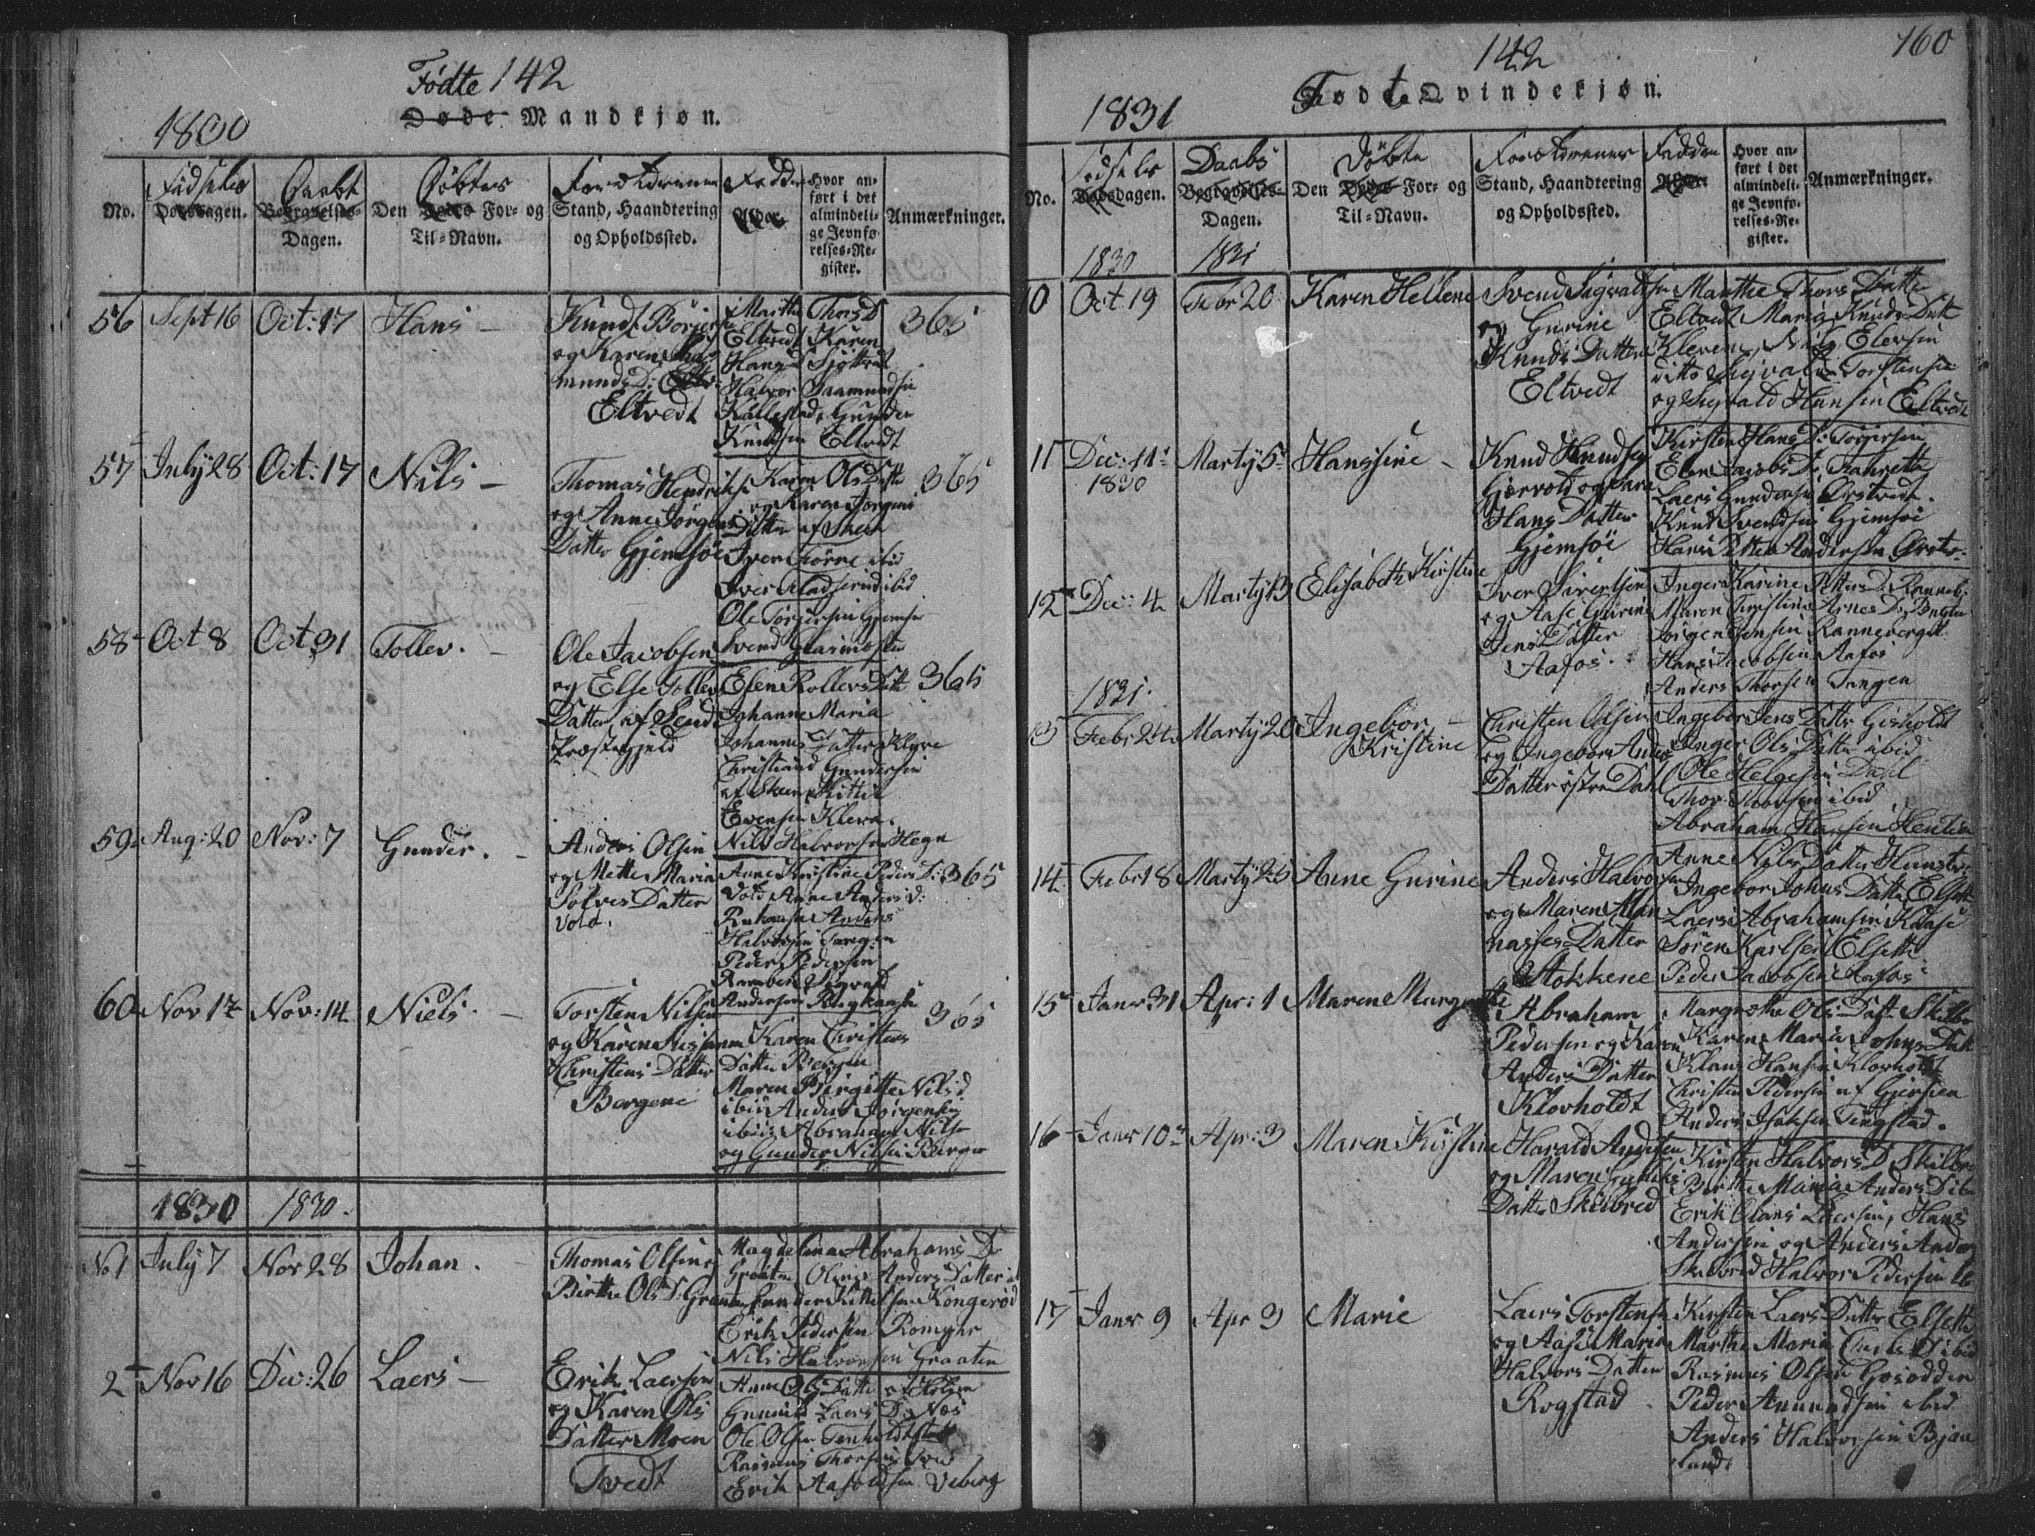 Fødte 142
Døde Mandkjøn.
1830
No.
Fødsels
Dødsdagen.
Daabs
Begravelses-
Dagen.
Døbtes
Den Døde For- og
Til-Navn.
Forældrenes
Stand, Haandtering
og Opholdssted.
Faddere
Alder
Hvor an-
ført i det
almindeli-
ge Jevnfø-
relses-Re-
gister.
Anmærkninger.
56 Sept 16 Oct: 17 Hans —
Knud Börjes
og Karen
munds D:
Eltvedt
Marthe Thors D
Eltvedt Karen
Hans D
Halvor Saamundsen
Kallestad, Gunder
Knudsen Eltvedt
365
57 July 28 Oct: 17 Nils —
Thomas Hendriks
og Anne Jörgens
Datter Gjemsöe
Karen Ols Dtt
og Karen Jörgens
Datter af Skien
Iver ibid
Iver ibid
Ole Torjersen Gjemsøe
Svend
365
58 Oct 8 Oct 31 Tollev. —
Ole Jacobsen
og Else Tollevs
Datter af
Præstegjeld
Elen Rollevs Dtt
Johanne Maria
Johannes Datter Klyve
Christiand Gundersen
af Skien
Evensen Kleven.
Nils Halvorsen Hegn
365
59 Aug: 20 Nov: 7 Gunder. —
Anders Olsen
og Mette Maria
Sölves Datter
Vold.
Anne Kristine Peders D:
Vold Anne Anders D:
Anders
Halvorsen Tangen
Peder Pedersen
Sigvald
Andersen
365
60 Nov 12 Nov: 14 Niels. —
Torsten Nilsen
og Karen
Christens Datter
Bergene
Karen Christens
Datter Bergen
Maren Birgitte Nils D
ibid Anders Jørgensen
ibid Abraham Nilsen
og Gunder Nilsen Berge
365
1830 1830.
No 1 July 7 Nov 28 Johan. —
Thomas Olsen
Birthe Ols D: Graaten
Magdelena Abrahams D
Graaten Oline Anders Datter
Gunder Kittilsen Kongerød
Erik Pedersen Romnes
Nils Halvorsen Graaten
2 Nov 16 Dec: 26 Laers —
Erik Laersen
og Karen Ols
Datter Moen
Tvedt
Anne Ols Datter
Gunnild Laers D: Næs
Ole Olsen
Rasmus Thorsen
Erik Aasoldsen Veberg
142
160
Fødte Qvindekjøn.
1831
No.
Fødsels
Dødsdagen.
Daabs
Begravelses-
Dagen.
Døbte
Den Døde For- og
Til-Navn.
Forældrenes
Stand, Haandtering
og Opholdssted.
Faddere
Alder.
Hvor an-
ført i det
almindeli-
ge Jevnfø-
relses-Re-
gister.
Anmærkninger.
1830 1831
10 Oct 19 Febr 20 Karen Hellene
Svend Sigvaldsen
og Gurine
Knuds Datter
Eltvedt
Marthe Thors Datter
Eltvedt Maria Knuds Datt
Kleven, Nils Elevsen
ditto Sigvald Torstensen
og Sigvald Hansen Eltvedt
11 Dec: 11 Marty 5 Hanssine —
1830
Knud Knudsen
Gjervold og Sara
Hans Datter
Gjemsöe
Kirsten Hans D: Torjersen
Elen Jacobs D:
Laers Gundersen Örstvedt.
Knud Svendsen Gjemsøe
Hans Petter Andersen
12 Dec: 4 Marty 13 Elisabeth Kirstine
Iver Sivertsen
og Aase Gurine
Jens Datter
Aafos.
Inger Karine Petters D:
Maren Kirstine Arnes D:
Jörgen Jensen Ranneberget
Hans Jacobsen Aafos
Anders Thorsen Tangen
1831.
13 Febr 24 Marty 20 Ingebor —
Kristine
Christen Olsen
og Ingebor Anders
Datter østre Dahl
Ingebor Jens Datter Gisholdt
Inger Ols Datter ibid
Ole Helgesen Dahl
Thor Thorsen ibid
Abraham Hansen
14 Febr 18 Marty 25 Anne Gurine
Anders Halvorsen
og Maren Man
nasses Datter
Stokkene
Anne Nils Datter
Ingebor Johns Datter Elseth
Laers Abrahamsen Kaase
Sören Karlsen Elseth
Peder Jacobsen Aafos
15 Janr 31 Apr: 1 Maren Margrethe
Abraham
Pedersen og Karen
Anders Datter
Klovholdt
Margrethe Ols Datt Skilbr
Karen Maria Johns Datt
Klaus Hansen Klovholt
Christen Pedersen af Gjerpen
Anders Isaksen Tingstad.
16 Janr 10 Apr: 3 Maren Kirstine
Harald Andersen
og Maren
Datter Skilbred
Kirsten Halvors D. Skilbr
Birthe Maria Anders D ib
Erik Olans Laersen, Hans
Andersen og Anders Anders
Skilbred Halvor Pedersen ib
17 Janr 9 Apr 3 Marie
Laers Torstensen
og Aase Maria
Halvors Datter
Rogstad
Kirsten Laers Datter Elseth
Marthe Maria D ibid
Rasmus Olsen
Peder Amundsen ibid
Anders Halvorsen Bjør
land